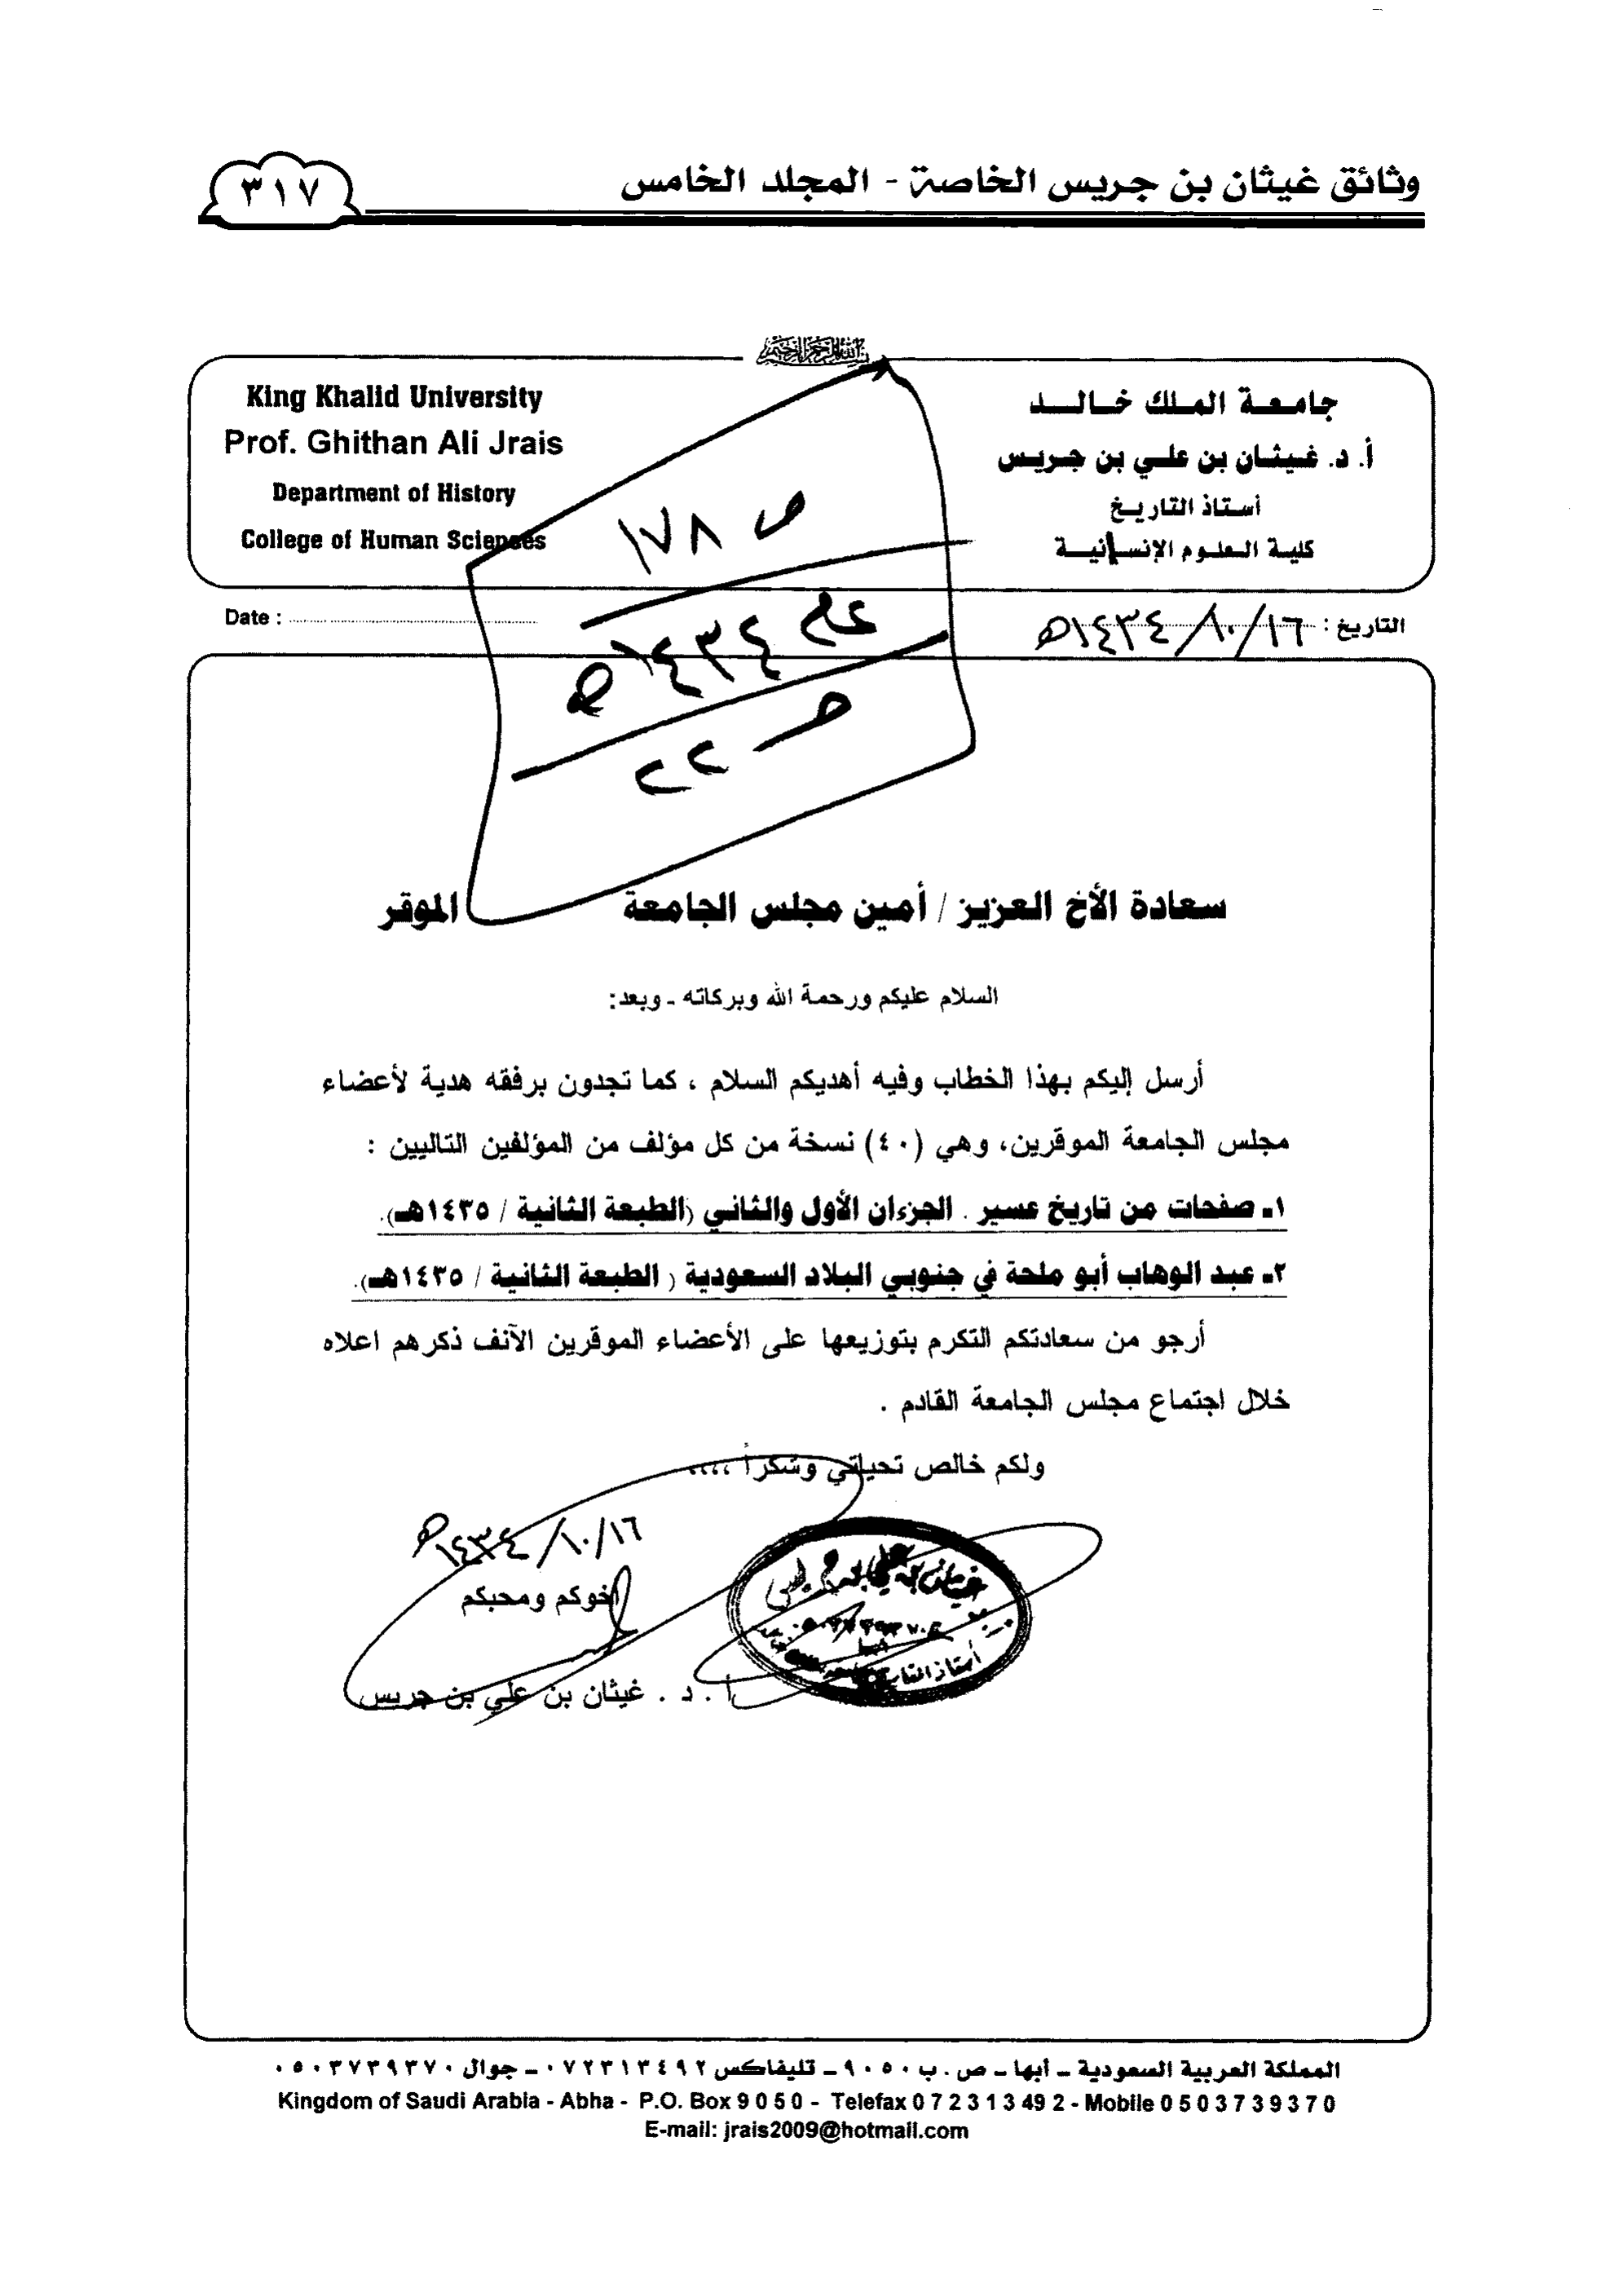 وثائق غيثان بن جريس الخاصة - المجلد الخامس
٣١٧
بسم الله الرحمن الرحيم
جامعة الملك خالد
أ. د. غيثان بن علي بن جريس
أستاذ التاريخ
كلية العلوم الإنسانية
King Khalid University
Prof. Ghithan Ali Jrais
Department of History
College of Human Sciences
ص ١٧٨
عام ١٤٣٤هـ
حـ ٢٢
التاريخ : ١٦/١٠/١٤٣٤هـ
Date :
سعادة الأخ العزيز / أمين مجلس الجامعة الموقر
السلام عليكم ورحمة الله وبركاته - وبعد:
أرسل إليكم بهذا الخطاب وفيه أهديكم السلام ، كما تجدون برفقه هدية لأعضاء
مجلس الجامعة الموقرين، وهي (٤٠) نسخة من كل مؤلف من المؤلفين التاليين :
١ـ صفحات من تاريخ عسير . الجزءان الأول والثاني (الطبعة الثانية / ١٤٣٥هـ).
٢ـ عبد الوهاب أبو ملحة في جنوبي البلاد السعودية ( الطبعة الثانية / ١٤٣٥هـ).
أرجو من سعادتكم التكرم بتوزيعها على الأعضاء الموقرين الآنف ذكرهم اعلاه
خلال اجتماع مجلس الجامعة القادم .
ولكم خالص تحياتي وشكراً ،،،،
١٦/١٠/١٤٣٤هـ
أخوكم ومحبكم
أ . د . غيثان بن علي بن جريس
غيثان بن علي بن جريس
المملكة العربية السعودية ـ أبها ـ ص . ب ٩٠٥٠ ـ تليفاكس ٠٧٢٣١٣٤٩٢ ـ جوال ٠٥٠٣٧٣٩٣٧٠
Kingdom of Saudi Arabia - Abha - P.O. Box 9 0 5 0 - Telefax 0 7 2 3 1 3 49 2 - Mobile 0 5 0 3 7 3 9 3 7 0
E-mail: jrais2009@hotmail.com